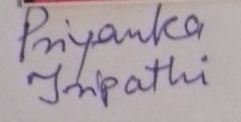 Priyanka
Tripathi